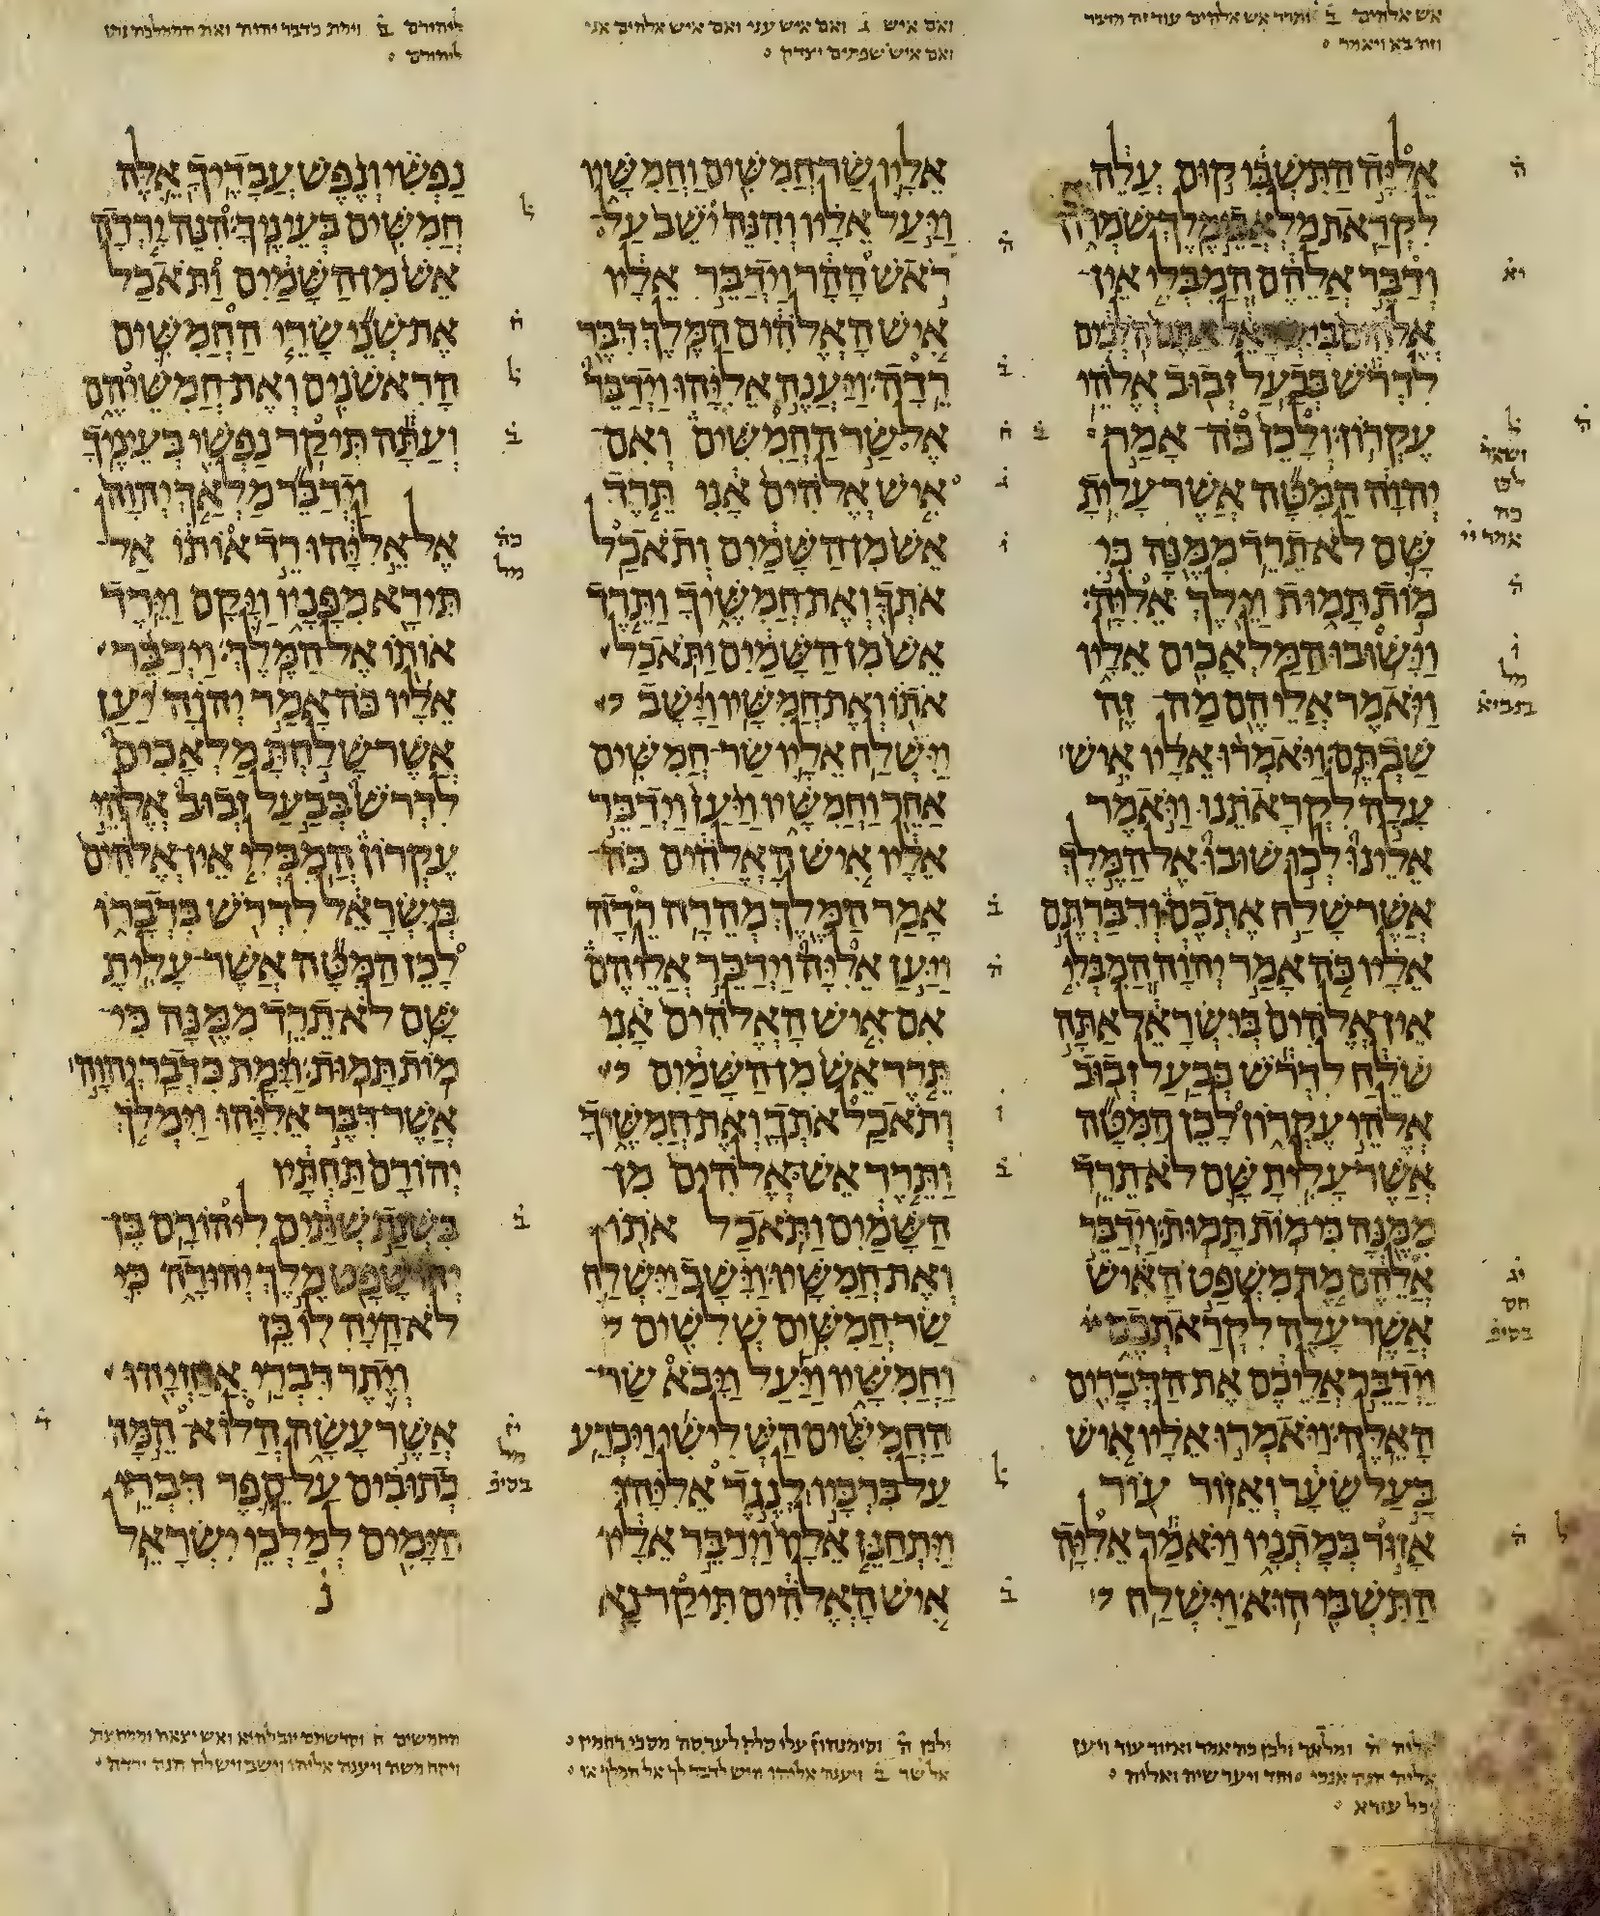 אש אלהים ב̇ ותרד אש אלהים עוד זה מדבר
וזה בא ויאמר
אֵלִיָּה הַתִּשְׁבִּי קוּם עֲלֵה
לִקְרַאת מַלְאֲכֵי מֶלֶךְ שֹׁמְרוֹן
וְדַבֵּר אֲלֵהֶם הֲמִבְּלִי אֵין
אֱלֹהִים בְּיִשְׂרָאֵל אַתֶּם הֹלְכִים
לִדְרֹשׁ בְּבַעַל זְבוּב אֱלֹהֵי
עֶקְרוֹן׃ וְלָכֵן כֹּה אָמַר
יְהוָה הַמִּטָּה אֲשֶׁר עָלִיתָ
שָּׁם לֹא תֵרֵד מִמֶּנָּה כִּי
מוֹת תָּמוּת וַיֵּלֶךְ אֵלִיָּה׃
וַיָּשׁוּבוּ הַמַּלְאָכִים אֵלָיו
וַיֹּאמֶר אֲלֵיהֶם מַה זֶּה
שַׁבְתֶּם׃ וַיֹּאמְרוּ אֵלָיו אִישׁ
עָלָה לִקְרָאתֵנוּ וַיֹּאמֶר
אֵלֵינוּ לְכוּ שׁוּבוּ אֶל הַמֶּלֶךְ
אֲשֶׁר שָׁלַח אֶתְכֶם וְדִבַּרְתֶּם
אֵלָיו כֹּה אָמַר יְהוָה הֲמִבְּלִי
אֵין אֱלֹהִים בְּיִשְׂרָאֵל אַתָּה
שֹׁלֵחַ לִדְרֹשׁ בְּבַעַל זְבוּב
אֱלֹהֵי עֶקְרוֹן לָכֵן הַמִּטָּה
אֲשֶׁר עָלִיתָ שָּׁם לֹא תֵרֵד
מִמֶּנָּה כִּי מוֹת תָּמוּת׃ וַיְדַבֵּר
אֲלֵהֶם מֶה מִשְׁפַּט הָאִישׁ
אֲשֶׁר עָלָה לִקְרַאתְכֶם
וַיְדַבֵּר אֲלֵיכֶם אֶת הַדְּבָרִים
הָאֵלֶּה׃ וַיֹּאמְרוּ אֵלָיו אִישׁ
בַּעַל שֵׂעָר וְאֵזוֹר עוֹר
אָזוּר בְּמָתְנָיו וַיֹּאמַר אֵלִיָּה
הַתִּשְׁבִּי הוּא׃ וַיִּשְׁלַח
ואם איש ג̇ ואם איש עני ואם איש אלהים אני
ואם איש שפתים יצדק
אֵלָיו שַׂר חֲמִשִּׁים וַחֲמִשָּׁיו
וַיַּעַל אֵלָיו וְהִנֵּה יֹשֵׁב עַל
רֹאשׁ הָהָר וַיְדַבֵּר אֵלָיו
אִישׁ הָאֱלֹהִים הַמֶּלֶךְ דִּבֶּר
רֵדָה׃ וַיַּעֲנֶה אֵלִיָּהוּ וַיְדַבֵּר
אֶל שַׂר הַחֲמִשִּׁים וְאִם
אִישׁ אֱלֹהִים אָנִי תֵּרֶד
אֵשׁ מִן הַשָּׁמַיִם וְתֹאכַל
אֹתְךָ וְאֶת חֲמִשֶּׁיךָ וַתֵּרֶד
אֵשׁ מִן הַשָּׁמַיִם וַתֹּאכַל
אֹתוֹ וְאֶת חֲמִשָּׁיו׃ וַיָּשָׁב
וַיִּשְׁלַח אֵלָיו שַׂר חֲמִשִּׁים
אַחֵר וַחֲמִשָּׁיו וַיַּעַן וַיְדַבֵּר
אֵלָיו אִישׁ הָאֱלֹהִים כֹּה
אָמַר הַמֶּלֶךְ מְהֵרָה רֵדָה׃
וַיַּעַן אֵלִיָּה וַיְדַבֵּר אֲלֵיהֶם
אִם אִישׁ הָאֱלֹהִים אָנִי
תֵּרֶד אֵשׁ מִן הַשָּׁמַיִם
וְתֹאכַל אֹתְךָ וְאֶת חֲמִשֶּׁיךָ
וַתֵּרֶד אֵשׁ אֱלֹהִים מִן
הַשָּׁמַיִם וַתֹּאכַל אֹתוֹ
וְאֶת חֲמִשָּׁיו׃ וַיָּשָׁב וַיִּשְׁלַח
שַׂר חֲמִשִּׁים שְׁלִשִׁים
וַחֲמִשָּׁיו וַיַּעַל וַיָּבֹא שַׂר
הַחֲמִשִּׁים הַשְּׁלִישִׁי וַיִּכְרַע
עַל בִּרְכָּיו לְנֶגֶד אֵלִיָּהוּ
וַיִּתְחַנֵּן אֵלָיו וַיְדַבֵּר אֵלָיו
אִישׁ הָאֱלֹהִים תִּיקַר נָא
ליהורם ב̇ וימת כדבר יהוה ואת הממלכה נתן
ליהורם
נַפְשִׁי וְנֶפֶשׁ עֲבָדֶיךָ אֵלֶּה
חֲמִשִּׁים בְּעֵינֶיךָ׃ הִנֵּה יָרְדָה
אֵשׁ מִן הַשָּׁמַיִם וַתֹּאכַל
אֶת שְׁנֵי שָׂרֵי הַחֲמִשִּׁים
הָרִאשֹׁנִים וְאֶת חֲמִשֵּׁיהֶם
וְעַתָּה תִּיקַר נַפְשִׁי בְּעֵינֶיךָ׃
וַיְדַבֵּר מַלְאַךְ יְהוָה
אֶל אֵלִיָּהוּ רֵד אוֹתוֹ אַל
תִּירָא מִפָּנָיו וַיָּקָם וַיֵּרֶד
אוֹתוֹ אֶל הַמֶּלֶךְ׃ וַיְדַבֵּר
אֵלָיו כֹּה אָמַר יְהוָה יַעַן
אֲשֶׁר שָׁלַחְתָּ מַלְאָכִים
לִדְרֹשׁ בְּבַעַל זְבוּב אֱלֹהֵי
עֶקְרוֹן הֲמִבְּלִי אֵין אֱלֹהִים
בְּיִשְׂרָאֵל לִדְרֹשׁ בִּדְבָרוֹ
לָכֵן הַמִּטָּה אֲשֶׁר עָלִיתָ
שָּׁם לֹא תֵרֵד מִמֶּנָּה כִּי
מוֹת תָּמוּת׃ וַיָּמָת כִּדְבַר יְהוָה
אֲשֶׁר דִּבֶּר אֵלִיָּהוּ וַיִּמְלֹךְ
יְהוֹרָם תַּחְתָּיו
בִּשְׁנַת שְׁתַּיִם לִיהוֹרָם בֶּן
יְהוֹשָׁפָט מֶלֶךְ יְהוּדָה כִּי
לֹא הָיָה לוֹ בֵּן׃
וְיֶתֶר דִּבְרֵי אֲחַזְיָהוּ
אֲשֶׁר עָשָׂה הֲלוֹא הֵמָּה
כְתוּבִים עַל סֵפֶר דִּבְרֵי
הַיָּמִים לְמַלְכֵי יִשְׂרָאֵל׃
אליה ה̇ ומלאך ולכן כה אמר ואזור עוד ויען
אליה הנה אנכי
וכל עזרא
ולכן
אל שר ב̇ ויענה אליהו היש לדבר לך אל המלך או
ויקח משה ויענה אליהו וישב וישלח הנה ירדה